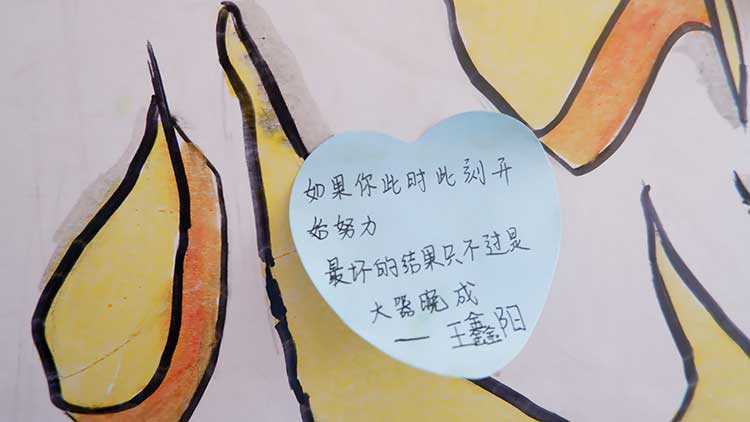 如果你此时此刻开
始努力
最坏的结果只不过是
大器晚成
— 王鑫阳